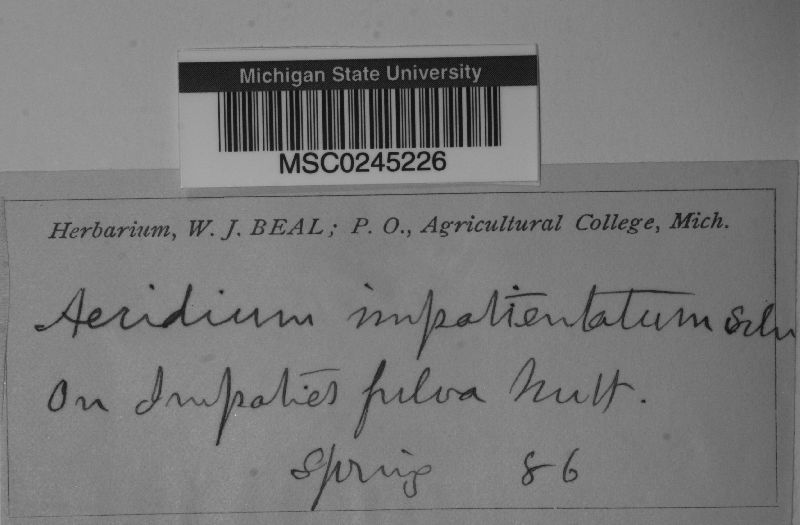 Michigan State University
MSC0245226
Herbarium, W. J. BEAL; P. O., Agricultural College, Mich.
Aeridium impatientatum Schw
On Impaties fulva Nutt.
Spring 86